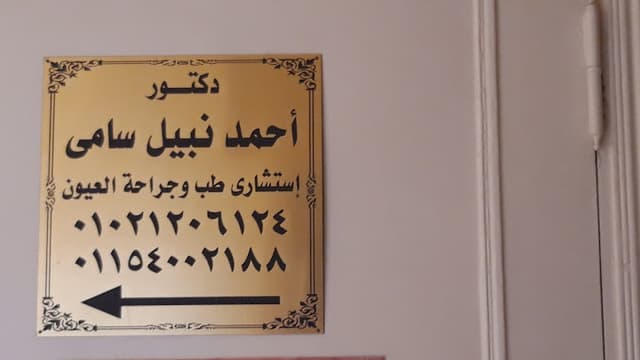 دكتور
أحمد نبيل سامى
إستشارى طب وجراحة العيون
٠١٠٢١٢٠٦١٢٤
٠١١٥٤٠٠٢١٨٨